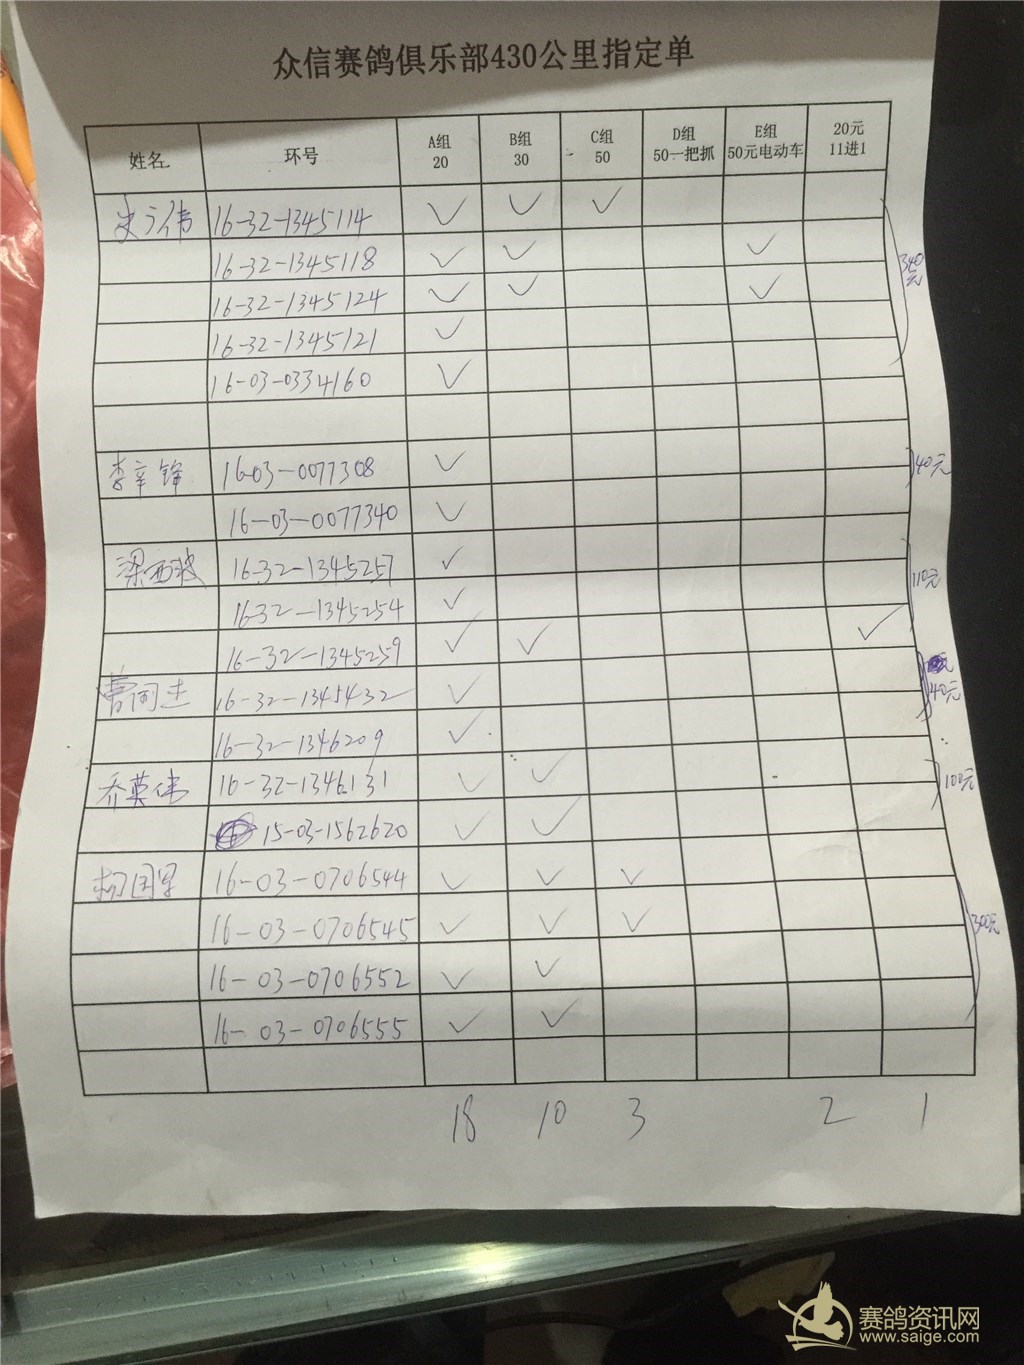 众信赛鸽俱乐部430公里指定单
姓名 环号 A组 20 B组 30 C组 50 D组 50一把抓 E组 50元电动车 20元 11进1
史立伟 16-32-1345114 ✓ ✓ ✓
16-32-1345118 ✓ ✓ ✓
340元
16-32-1345124 ✓ ✓ ✓
16-32-1345121 ✓
16-03-0334160 ✓
李辛锋 16-03-0077308 ✓ 40元
16-03-0077340 ✓
梁西波 16-32-1345257 ✓
16-32-1345254 ✓ 110元
16-32-1345259 ✓ ✓ ✓
16-32-1345432 ✓ 40元
16-32-1346209 ✓
乔英伟 16-32-1346131 ✓ ✓ 100元
15-03-1562620 ✓ ✓
杨国军 16-03-0706544 ✓ ✓ ✓
16-03-0706545 ✓ ✓ ✓ 300元
16-03-0706552 ✓ ✓
16-03-0706555 ✓ ✓
18 10 3 2 1
赛鸽资讯网
www.saige.com